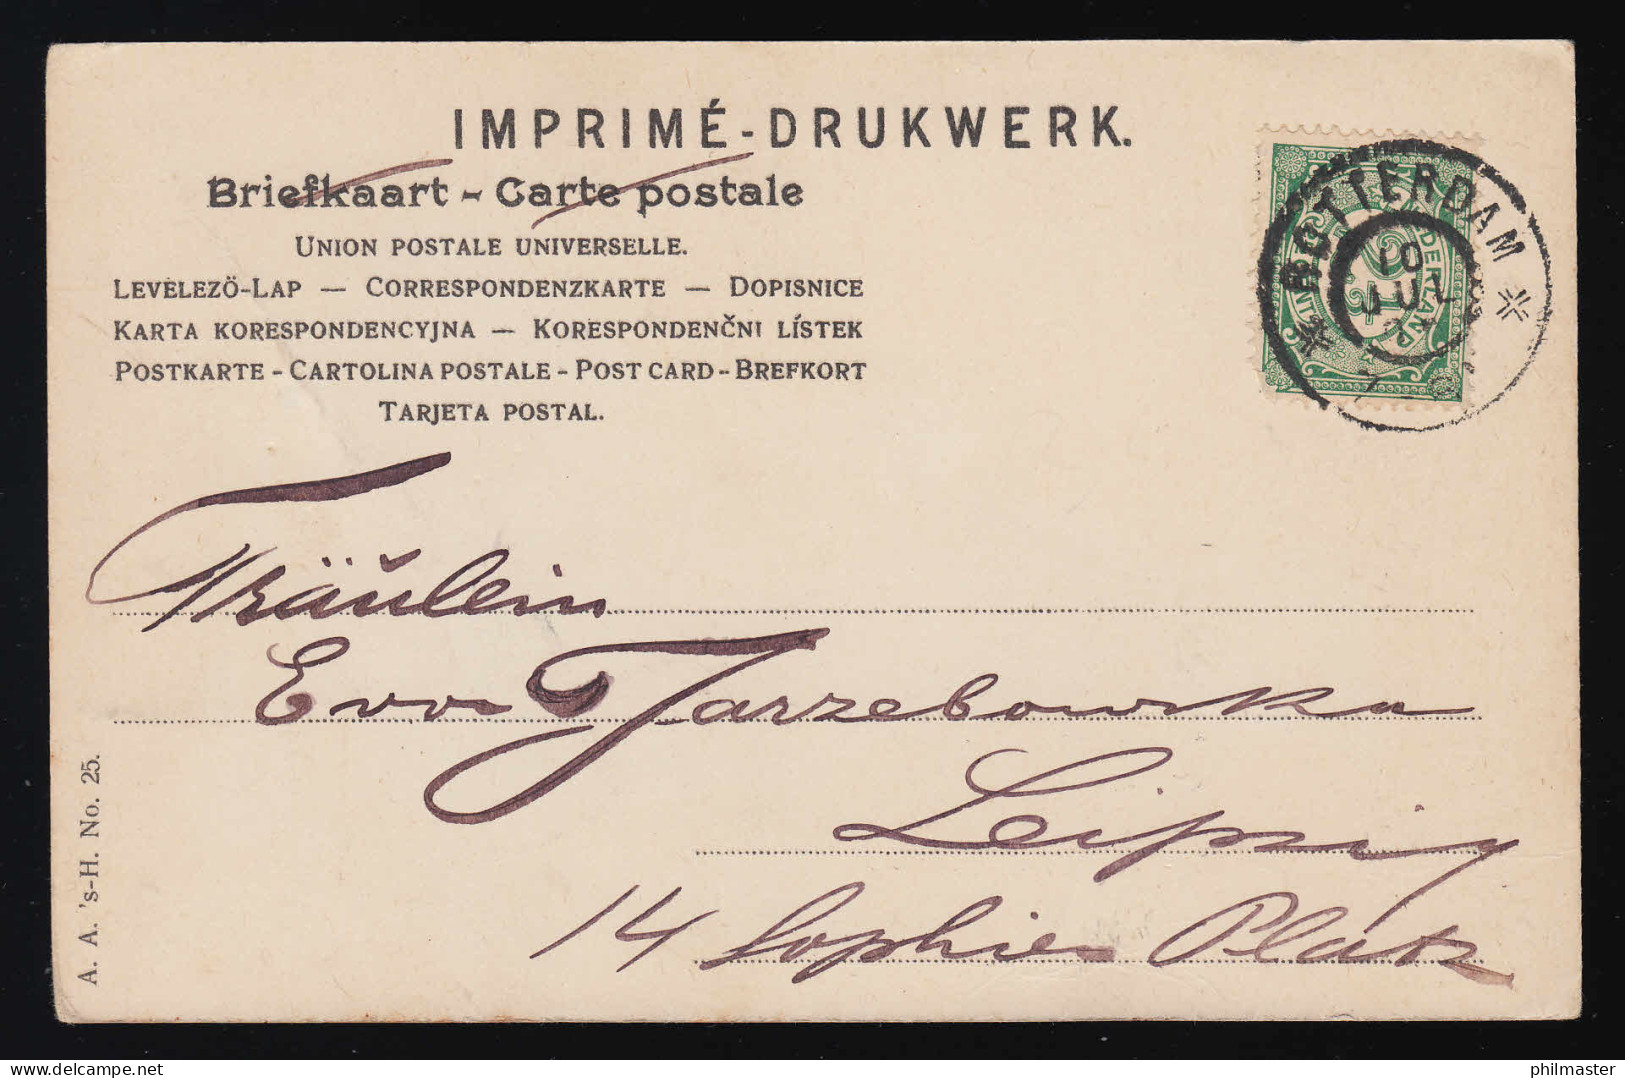 IMPRIMÉ-DRUKWERK.
Briefkaart - Carte postale
UNION POSTALE UNIVERSELLE.
LEVELEZÖ-LAP — CORRESPONDENZKARTE — DOPISNICE
KARTA KORESPONDENCYJNA — KORESPONDENČNI LÍSTEK
POSTKARTE - CARTOLINA POSTALE - POST CARD - BREFKORT
TARJETA POSTAL.
ROTTERDAM
10
JUL
Fräulein
Eva Jarzebowska
Leipzig
14 Sophien Platz
A. A. 's-H. No. 25.
philmaster